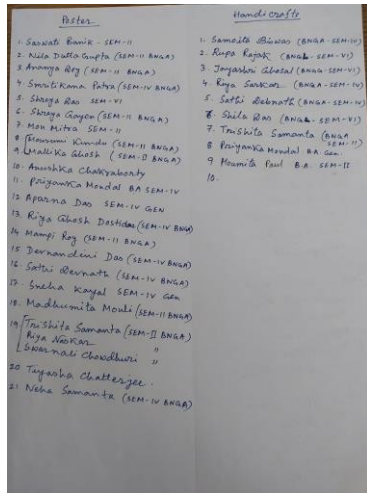 Poster
1. Saswati Banik - SEM-II
2. Nila Dutta Gupta (SEM-II BNGA)
3. Ananya Roy (SEM-II BNGA)
4. Smriti Kona Patra (SEM-IV BNGA)
5. Shreya Das SEM-VI
6. Shreya Gayen (SEM-II BNGA)
7. Mou Mitra SEM-II
8 Mousumi Kundu (SEM-II BNGA)
9 Mallika Ghosh (SEM-II BNGA)
10. Anushka Chakraborty
11. Priyanka Mondal BA SEM-IV
12 Aparna Das SEM-IV GEN
13. Riya Ghosh Dastidar (SEM-IV BNGA)
14 Mampi Roy (SEM-II BNGA)
15 Devnandini Das (SEM-IV BNGA)
16. Sathi Devnath (SEM-IV BNGA)
17. Sneha Kayal SEM-IV Gen
18. Madhumita Mouli (SEM-II BNGA)
19 Trishita Samanta (SEM-II BNGA)
Riya Naskar "
Swarnali Chowdhuri "
20 Tiyasha Chatterjee.
21 Neha Samanta (SEM-IV BNGA)
Handicrafts
1. Samaita Biswas (BNGA-SEM-IV)
2. Rupa Rajak (BNGA-SEM-VI)
3. Jayashri Ghosal (BNGA-SEM-VI)
4. Riya Sarkar (BNGA-SEM-IV)
5. Sathi Debnath (BNGA-SEM-IV)
6. Shila Das (BNGA-SEM-VI)
7. Trishita Samanta (BNGA
SEM-II)
8 Priyanka Mondal B.A. Gen.
9 Moumita Paul B.A. SEM-II
10.